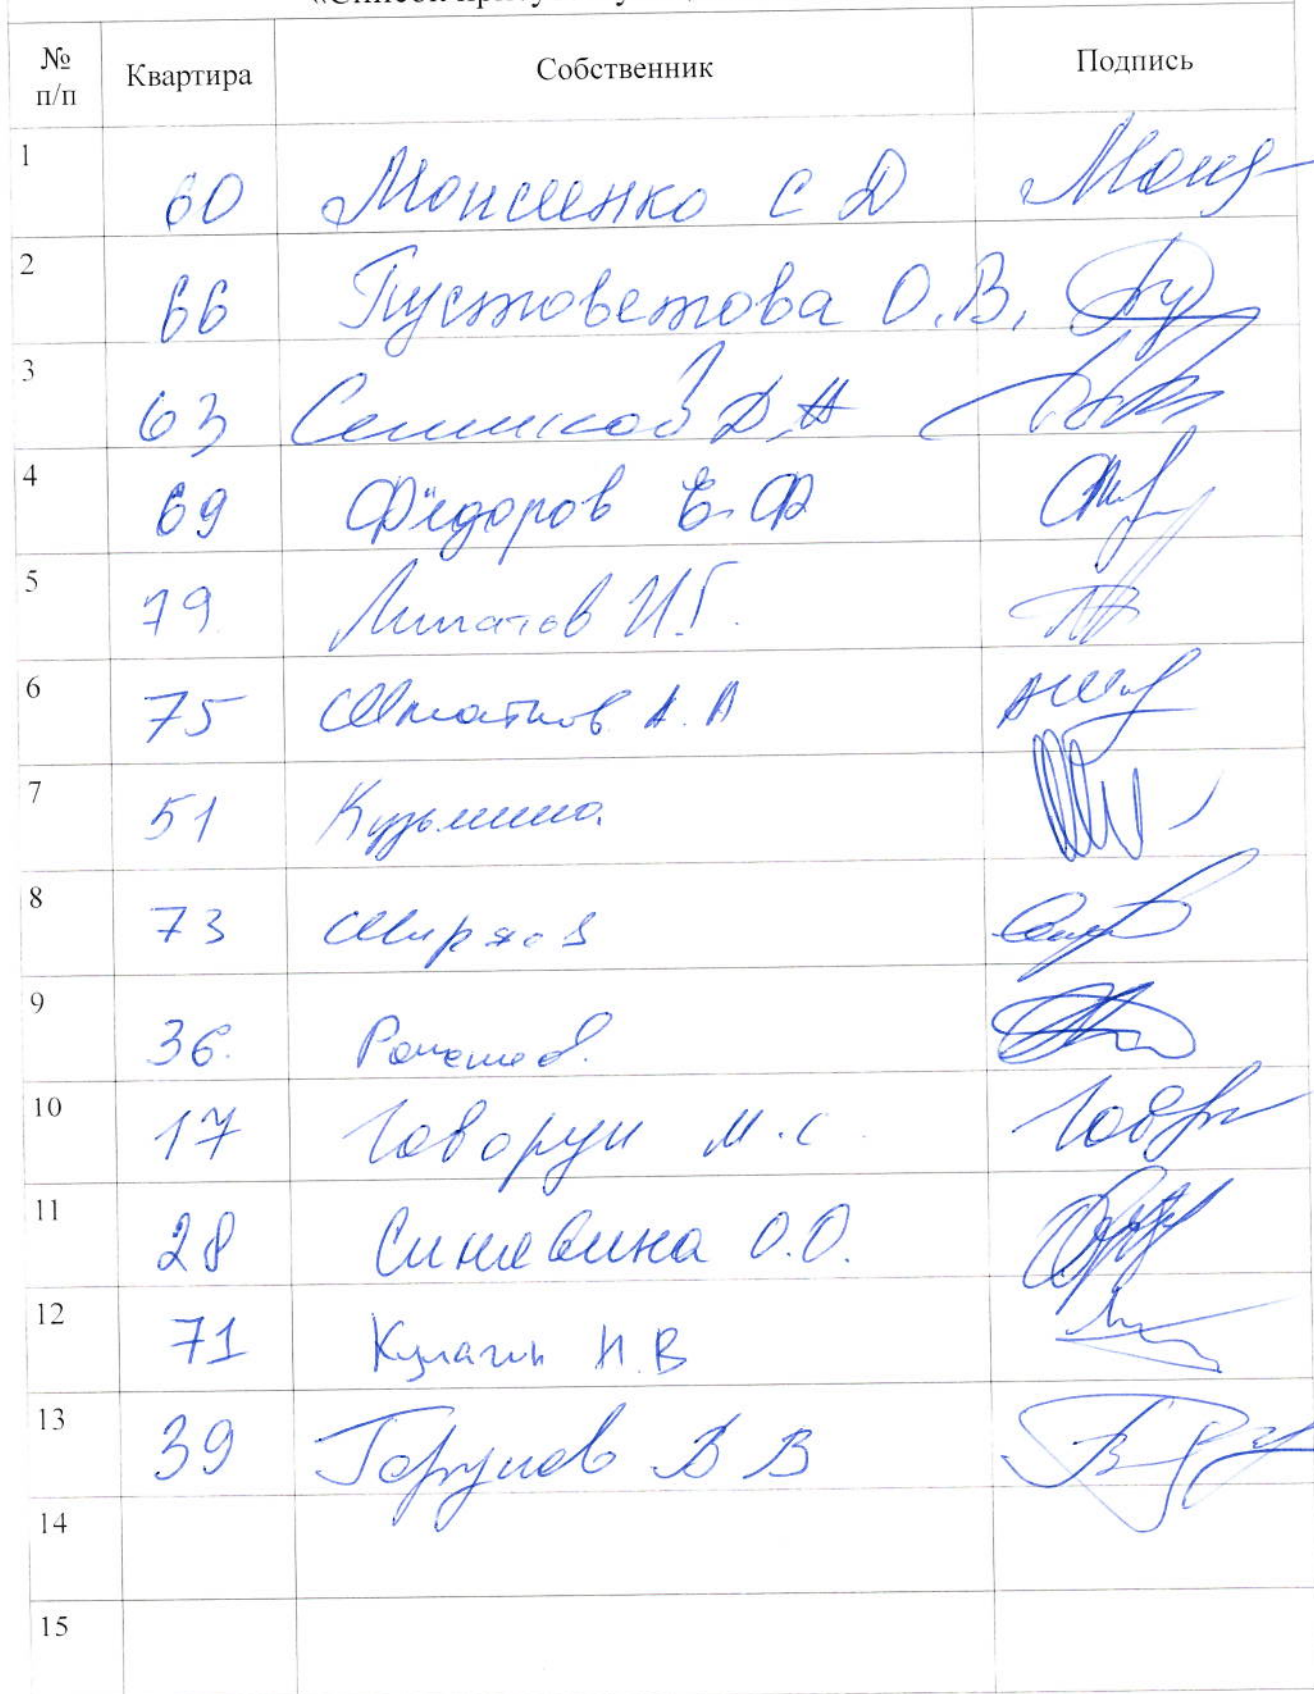 № п/п Квартира Собственник Подпись
1 60 Моисеенко С Д
2 66 Пустоветова О.В.
3 63 Д.А
4 69 Фёдоров Е.Ф
5 79 Липатов И.Г.
6 75 Шматков А.А
7 51 Кузьмина
8 73
9 36.
10 17 Говорун М.С
11 28 Синевина О.О.
12 71 Кулагин Н.В
13 39 В В
14
15